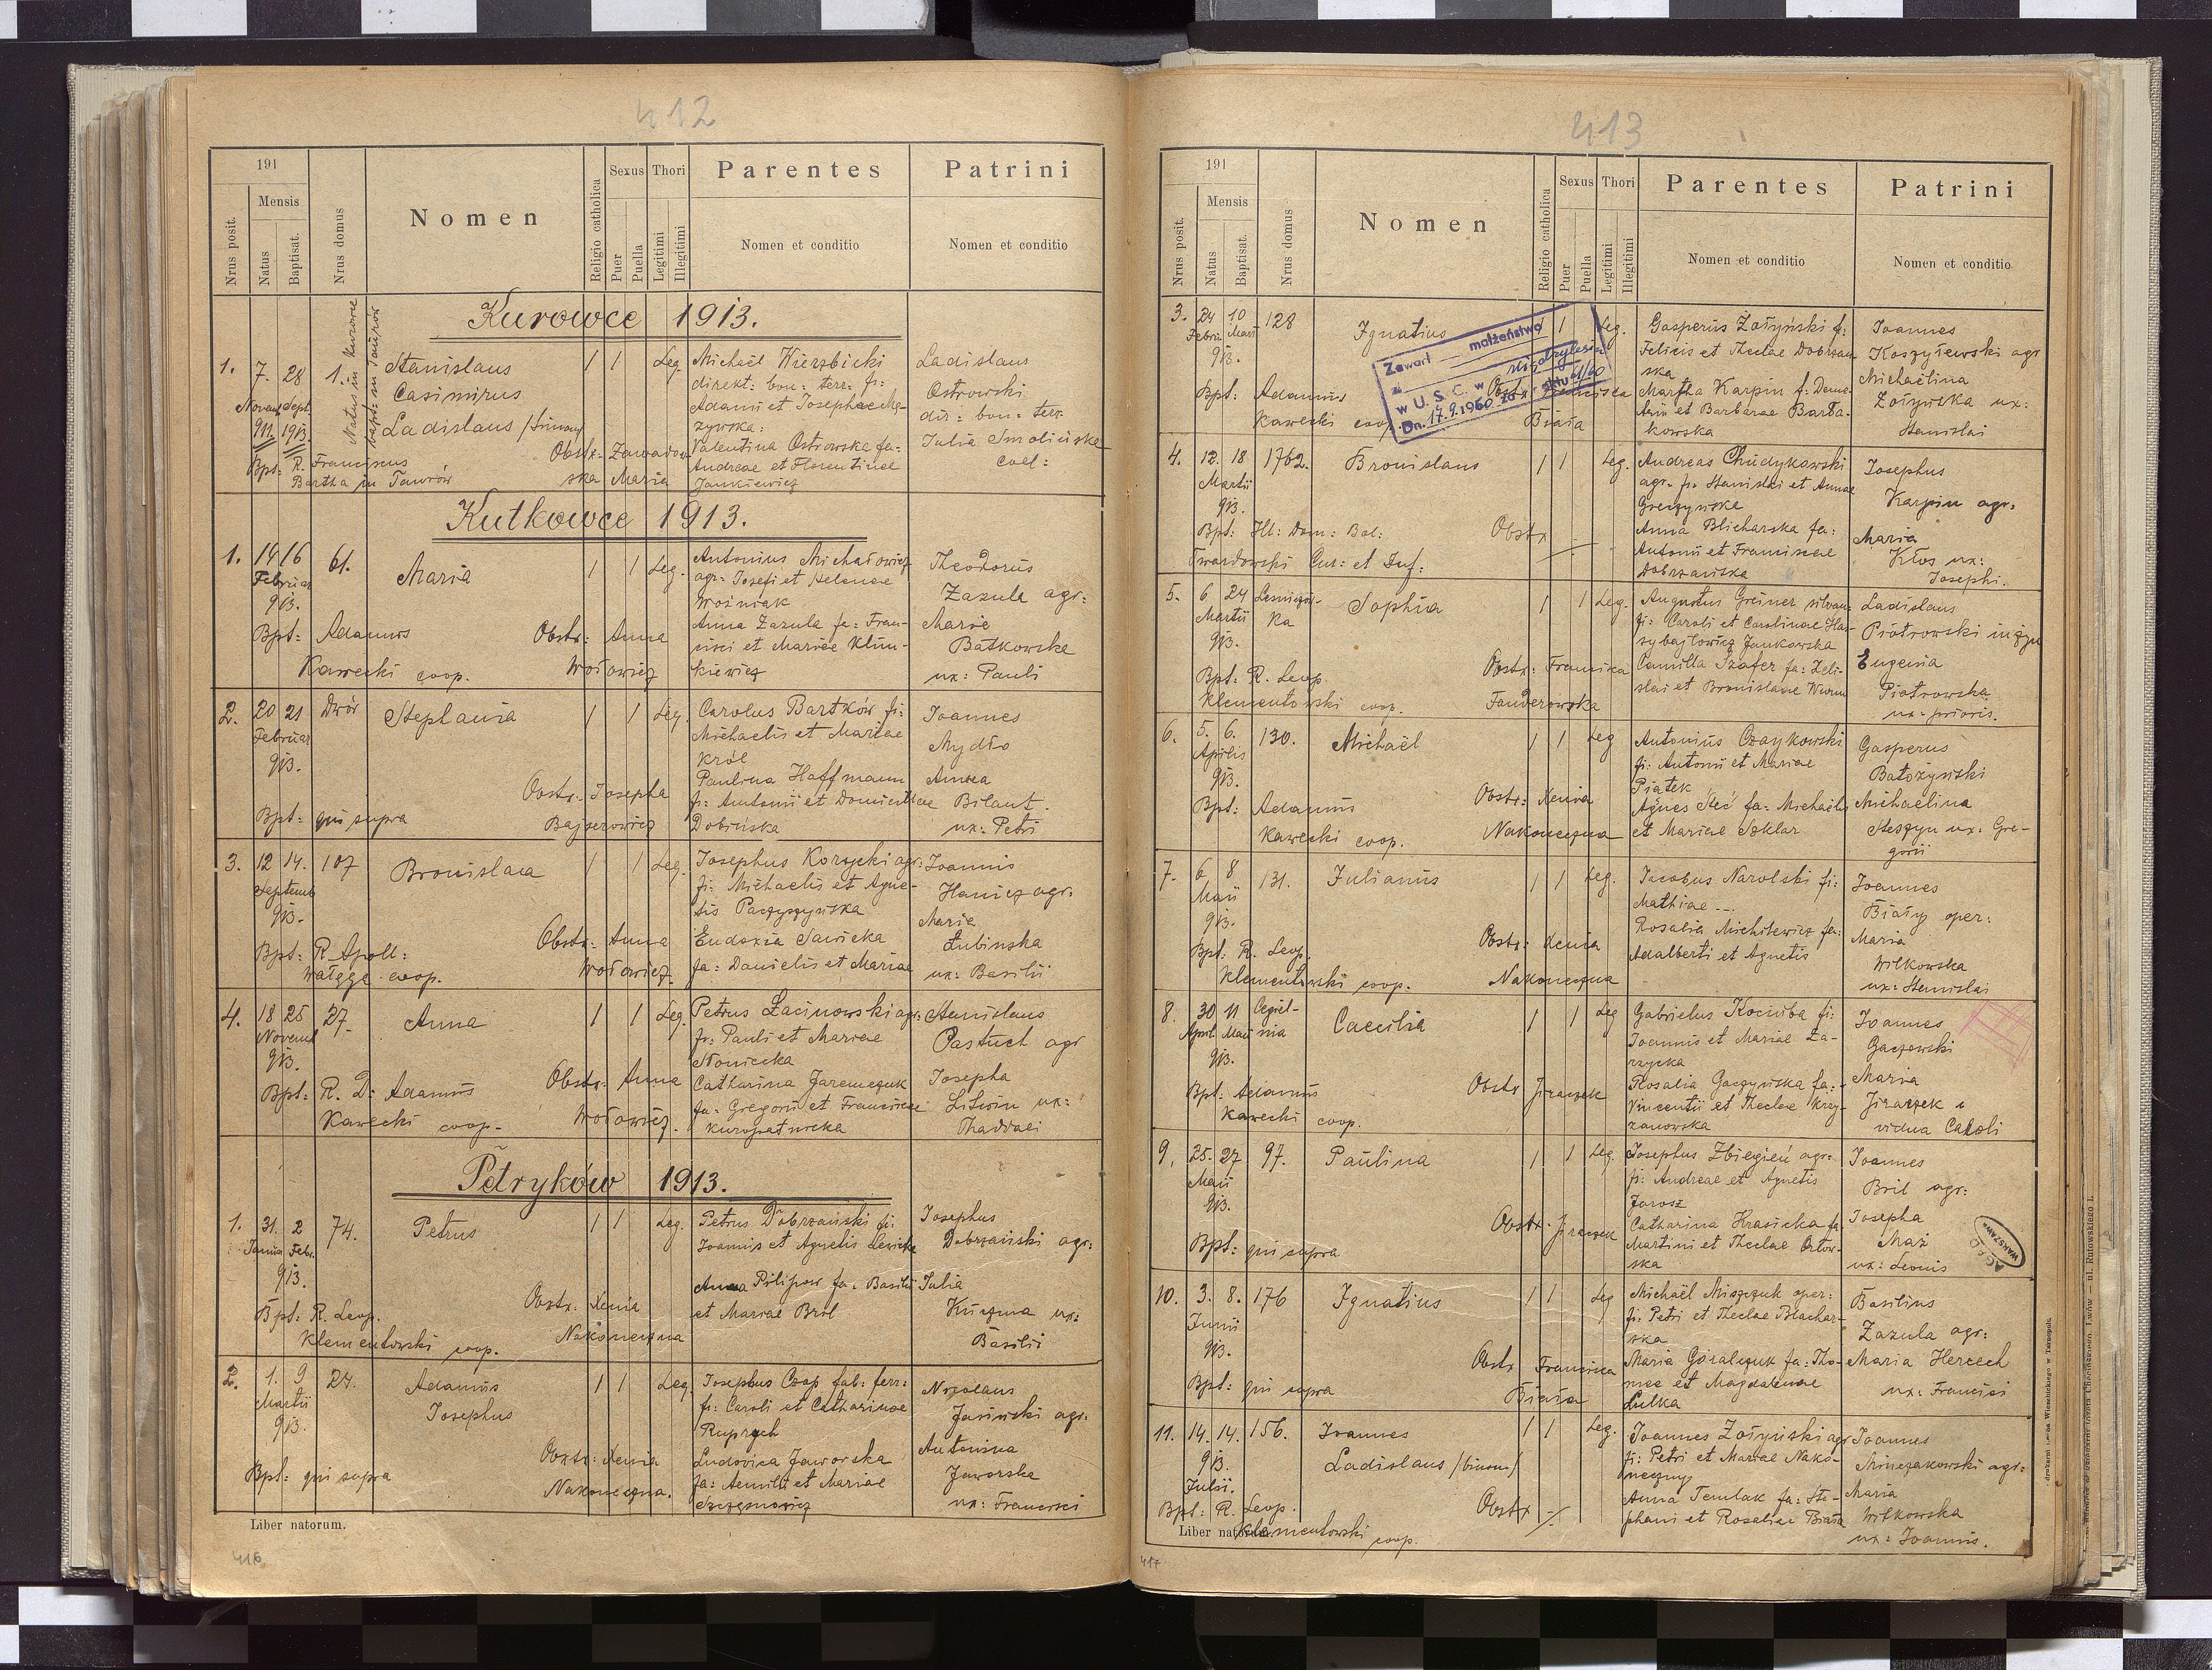 412
191
Nrus posit.
Mensis
Natus
Baptisat.
Nrus domus
Nomen
Religio catholica
Sexus
Puer
Puella
Thori
Legitimi
Illegitimi
Parentes
Nomen et conditio
Patrini
Nomen et conditio
Kurowce 1913.
1. 7. 28 1. Stanislaus 1 1 Leg. Michaël Wierzbicki Ladislaus
Natus in Kurowce
bapt: in Taurów
Casimirus direkt: bon: terr: fi: Ostrowski
911. 1913. Ladislaus Adami et Josephae dir: bon: terr:
Valentina Ostrowska fa: Julia Smolińska
Obstx: Zawadow
ska Maria Andreae et Florentinae coel:
Bpt: R. Franciscus Jankiewicz
Bartha in Taurów
Kutkowce 1913.
1. 14 16 61. Maria 1 1 Leg. Antonius Michałowicz Theodorus
Februar agr: Josefi et Helenae Zazula agr:
913. Woźniak
Bpt: Adamus Obstx: Anna Anna Zazula fa: Fran- Marie
cisci et Mariae Klim- Batkowska
Kawecki coop. Wołowicz kiewicz ux: Pauli
2. 20 21 Dwór Stephania 1 1 Leg. Carolus Bartków fi: Joannes
Februar Michaelis et Mariae Mydło
913. Król
Obstx: Josepha Paulina Hoffmann Anna
fi: Antonii et Domicellae Bilant.
Bpt: qui supra Bajserowicz Dobińska ux: Petri
3. 12 14. 107 Bronislava 1 1 Leg. Josephus Korzycki agr: Joannis
Septemb fi: Michaelis et Agne- Hanicz agr:
913. tis Maria
Bpt: R. Apoll: Obstx: Anna Eudoxia Sawicka Łubinska
Wałęga coop. Wołowicz fa: Danielis et Mariae ux: Basilii
4. 18 25 27. Anna 1 1 Leg. Petrus Łacinowski agr: Stanislaus
Novemb fi: Pauli et Mariae Pastuch agr
913. Słoniecka
Bpt: R. D: Adamus Obstx: Anna Catharina Jaremczuk Josepha
fa: Gregorii et Franciscae Litwin ux:
Kawecki coop. Wołowicz. Kuropatnicka Thaddaei
Petryków 1913.
1. 31. 2 74. Petrus 1 1 Leg. Petrus Dobrzański fi: Josephus
Januar Febr. Joannis et Agnetis Levicka Dobrzański agr:
913. Anna Pilipow fa: Basilii Julia
Bpt: R. Leop. Obstx: Xenia et Mariae Bril Kuzma ux:
Klementowski coop. Nakoneczna Basilii
2. 1. 9 24. Adamus 1 1 Leg. Josephus Czop fab: ferr: Nicolaus
Martii Josephus fi: Caroli et Catharinae Jasiński agr:
913. Ruprych
Obstx: Xenia Ludovica Jaworska Antonina
Bpt: qui supra fa: Aemilii et Mariae Jaworska
Nakoneczna. Szczęsnowicz ux: Francisci
Liber natorum.
416
413
191
Nrus posit.
Mensis
Natus
Baptisat.
Nrus domus
Nomen
Religio catholica
Sexus
Puer
Puella
Thori
Legitimi
Illegitimi
Parentes
Nomen et conditio
Patrini
Nomen et conditio
3. 24 10 128 Ignatius 1 1 Leg. Gasperus Żołyński fi: Joannes
Febru Mart Felicis et Theclae Dobrzan- Koszyłewski agr
913. ska Michaëlina
Bpt: Adamus Obstx: Francisca Martha Karpin f. Dame- Żołyńska ux:
Kawecki coop. Biała et Barbarae Barta- Stanislai
kowska
Zawarł małżeństwo
w U.S.C. w
Dn. 17.9.1960
4. 12. 18 1762. Bronislaus 1 1 Leg. Andreas Chudykowski Josephus
Martii agr: fi: Stanislai et Annae Karpin agr:
913. Greczyńska
Bpt: Ill: Dom: Bol: Obstx Anna Blicharska fa: Maria
Antonii et Franciscae Kłos ux:
Twardowski Cur: et Inf: Dobrzańska Josephi.
5. 6 24 Leśniczów- Sophia 1 1 Leg. Augustus Greiner silvan: Ladislaus
Martii ka fi: Caroli et Carolinae Piotrowski
913. Jankowska
Bpt: R. Leop. Obstx: Francisca Camilla Szafer fa: Eugenia
Klementowski coop. Fanderowska et Bronislavae Piotrowska
ux: prioris.
6. 5. 6. 130. Michaël 1 1 Leg Antonius Czaykowski Gasperus
Aprilis fi: Antonii et Mariae Batożyński
913. Piątek
Bpt: Adamus Obstx: Xenia Agnes Steć fa: Michaëlis Michaelina
Kawecki coop. Nakoneczna et Mariae Szklar Steszyn ux: Gre-
gorii
7. 6 8 131. Julianus 1 1 Leg. Jacobus Narolski fi: Joannes
Maii Mathiae -- Biały oper:
913. Rosalia Michilewicz fa: Maria
Bpt: R. Leop. Obstx: Xenia Adalberti et Agnetis Wilkowska
Klementowski coop. Nakoneczna ux: Stanislai
8. 30 11 Cegiel- Caecilia 1 1 Leg Gabrielus Kociuba fi: Joannes
April Maii nia Joannis et Mariae Za- Gaczowski
913. rzycka
Bpt: Adamus Obstx Jiraszek Rosalia Gaczyńska fa: Maria
Vincentii et Theclae Krzy- Jiraszek
Kawecki coop. żanowska vidua Caroli
9. 25. 27 97. Paulina 1 1 Leg. Josephus Zbiegień agr: Joannes
Maii fi: Andreae et Agnetis Bril agr:
913. Jarosz
Obstx: Jiraszek Catharina Krasicka fa Josepha
Martini et Theclae Ostow- Maź
Bpt: qui supra ska ux: Leonis
AGAD WARSZAWA
10. 3. 8. 176 Ignatius 1 1 Leg Michaël Miszczuk oper: Basilius
Junii fi: Petri et Theclae Blachar- Zazula agr:
913. ska
Obstx Francisca Maria Góralczuk fa: Tho- Maria Hercech
Bpt: qui supra mae et Magdalenae ux: Francisci
Biała Lulka
11. 14. 14. 156. Joannes 1 1 Leg. Joannes Żołyński agr Joannes
913. Ladislaus /binom/ fi: Petri et Mariae Nako- agr:
Julii. necznyj Maria
Bpt: R. Leop. Obstx Anna Temlak fa: Ste- Wilkowska
Klementowski coop. phani et Rosaliae Biała ux: Joannis.
Liber natorum.
417